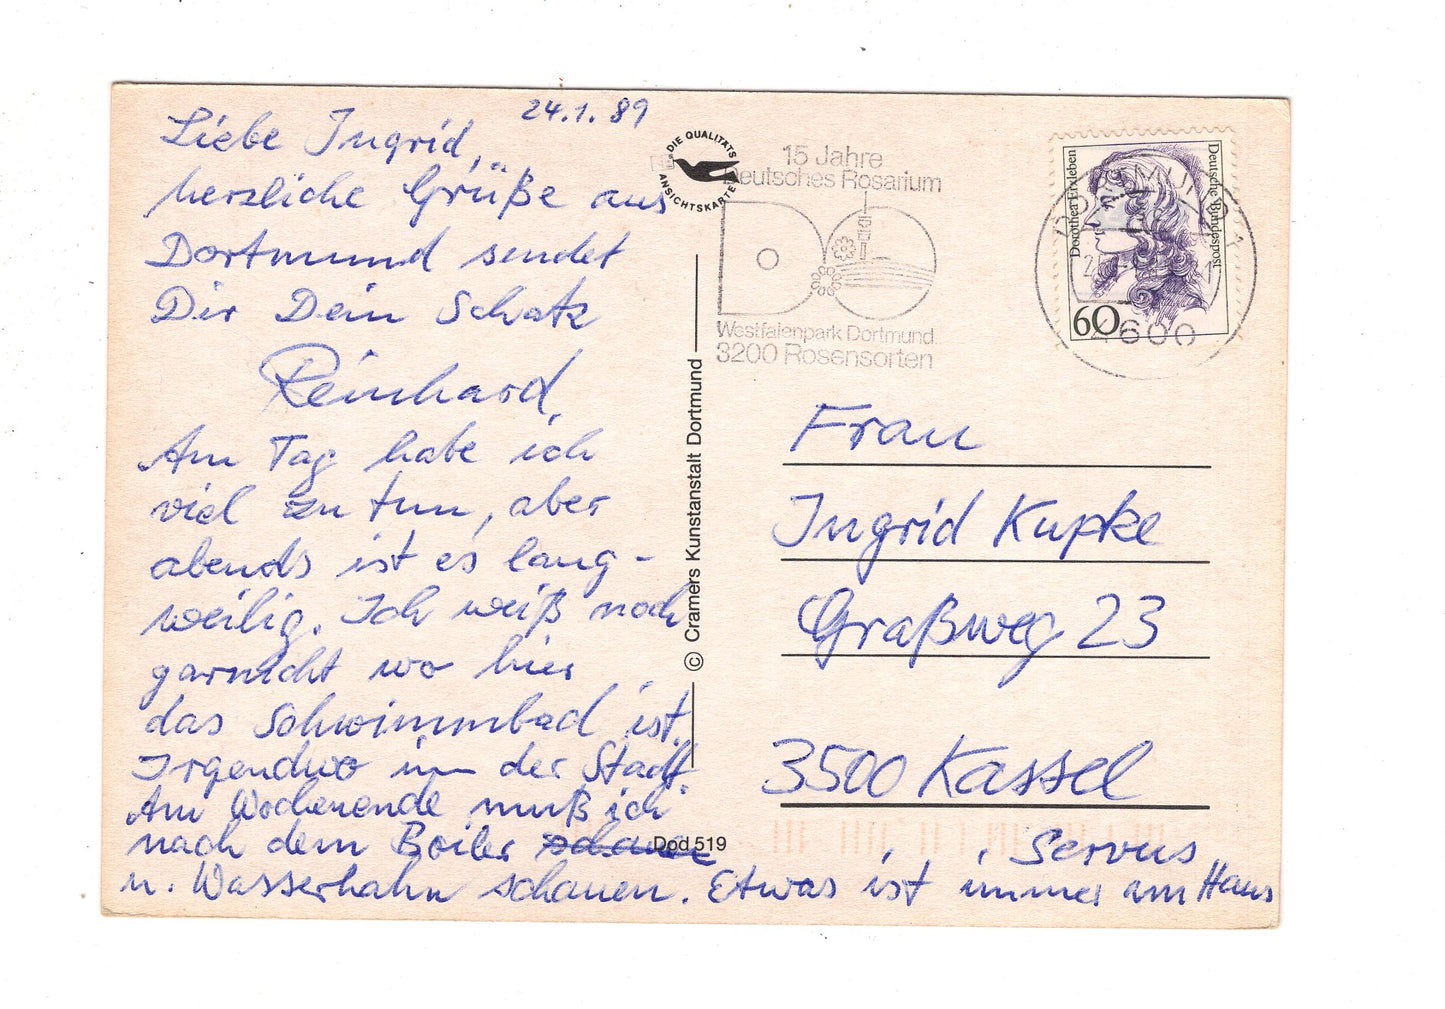 24.1.89
Liebe Ingrid,
herzliche Grüße aus
Dortmund sendet
Dir Dein Schatz
Reinhard.
Am Tag habe ich
viel zu tun, aber
abends ist es lang-
weilig. Ich weiß noch
garnicht wo hier
das Schwimmbad ist.
Irgendwo in der Stadt.
Am Wochenende muß ich
nach dem Boiler schauen
u. Wasserhahn schauen. Etwas ist immer am Haus
Servus
DIE QUALITÄTS
ANSICHTSKARTE
© Cramers Kunstanstalt Dortmund
Dod 519
15 Jahre
Deutsches Rosarium
Westfalenpark Dortmund
3200 Rosensorten
Dorothea Erxleben
Deutsche Bundespost
60
DORTMUND 1
4600
Frau
Ingrid Kupke
Graßweg 23
3500 Kassel